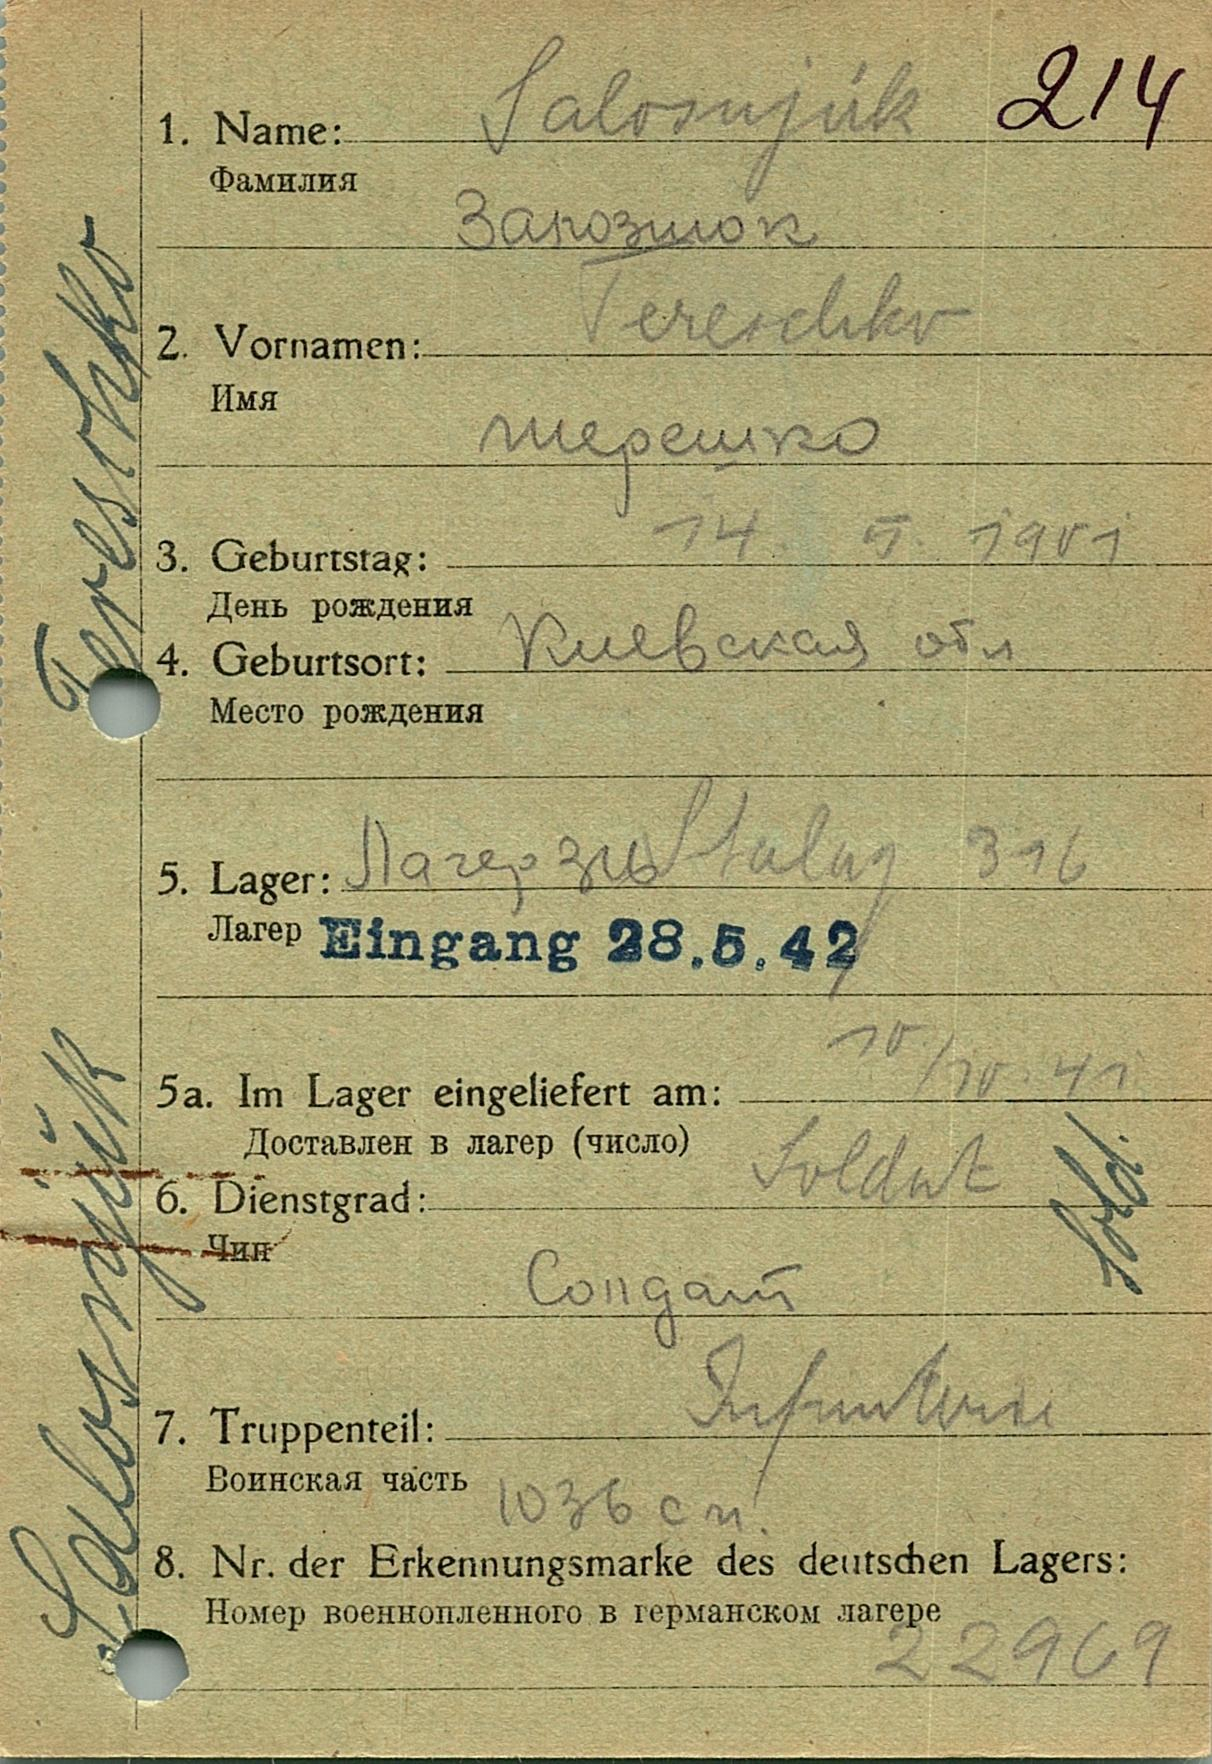 214
1. Name: Salosnjúk
Фамилия
Залозшок
2. Vornamen: Tereschko
Имя
терешко
3. Geburtstag: 14 5. 1901
День рождения
4. Geburtsort: Киевская обл
Место рождения
5. Lager: Лагер 316 Stalag 316
Лагер Eingang 28.5.42
5a. Im Lager eingeliefert am: 10./10. 41
Доставлен в лагер (число)
6. Dienstgrad: Soldat
Sold.
Чин
Солдат
7. Truppenteil: Infanterie
Воинская часть 1036 с п.
8. Nr. der Erkennungsmarke des deutschen Lagers:
Номер военнопленного в германском лагере
22969
Salosnjúk Tereschko